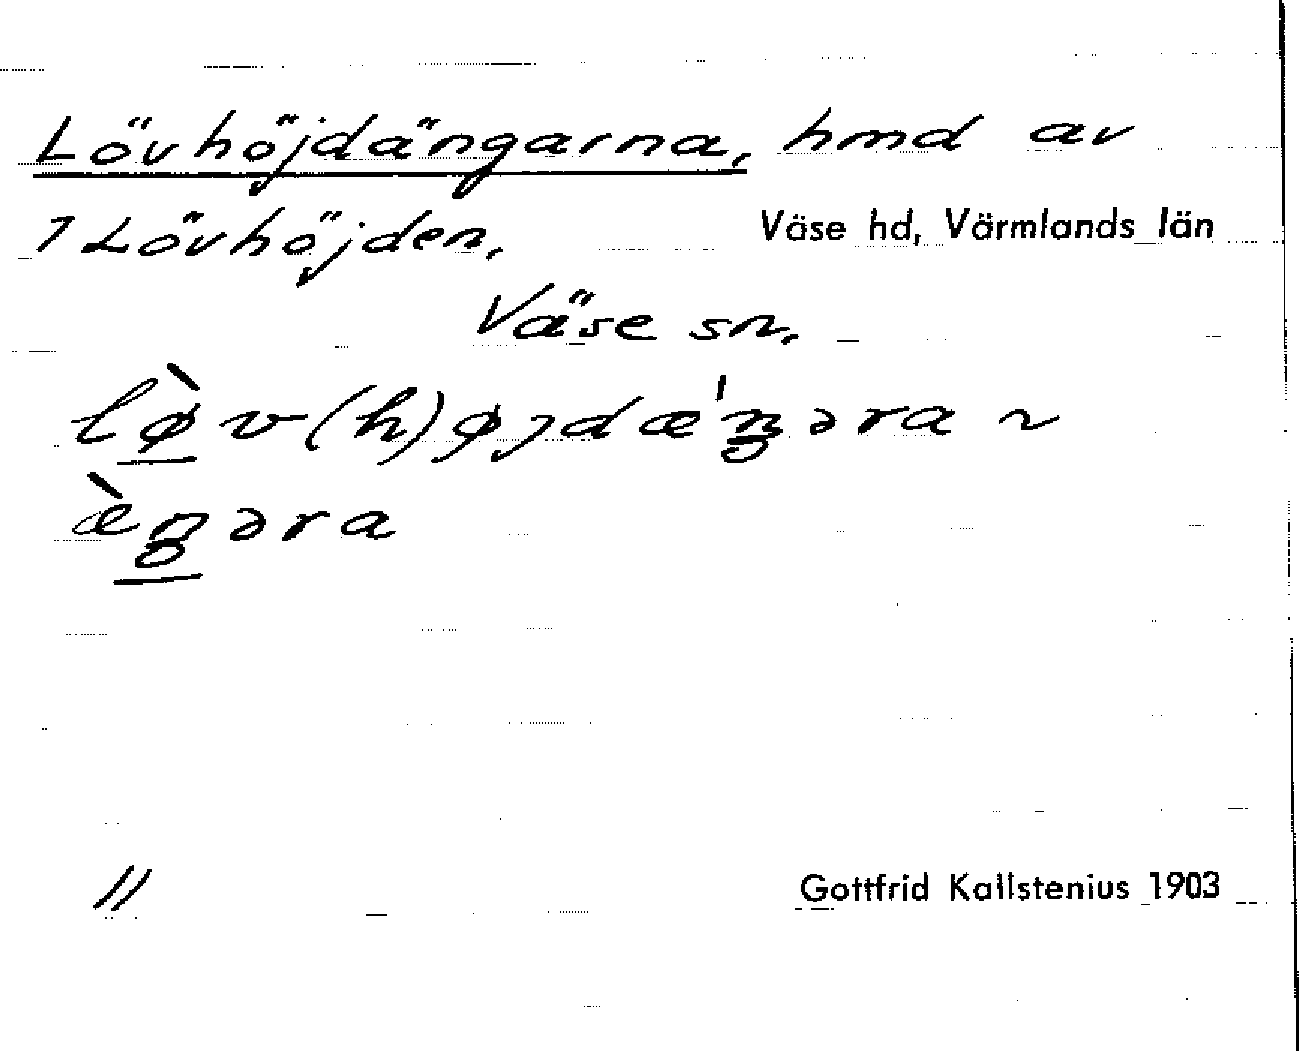 Lövhöjdängarna, hmd av
1 Lövhöjden. Väse hd, Värmlands län
Väse sn.
lø̀v(h)øjdæ'ŋəra ~
æ̀ŋəra
11 Gottfrid Kallstenius 1903